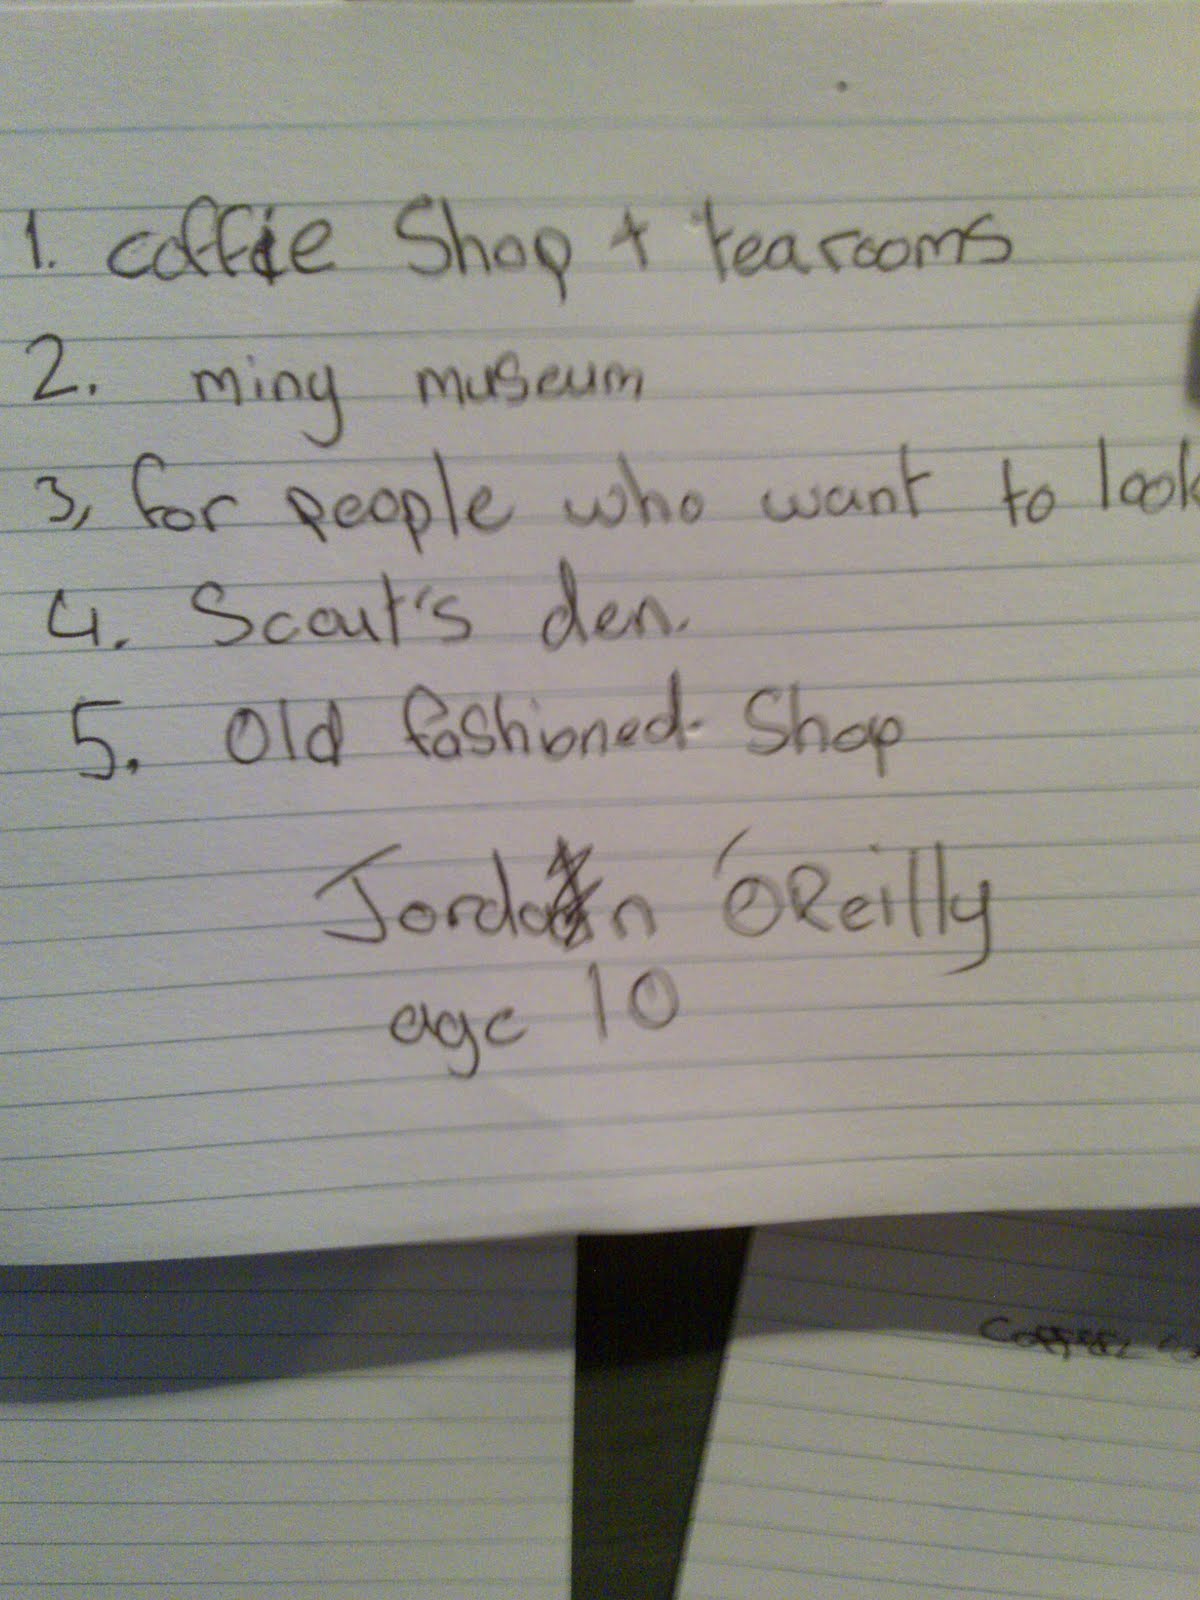 1. coffie Shop + tearooms
2. miny museum
3, for people who want to look
4. Scout's den.
5. Old fashioned Shop
Jordan O'Reilly
age 10
Coffee